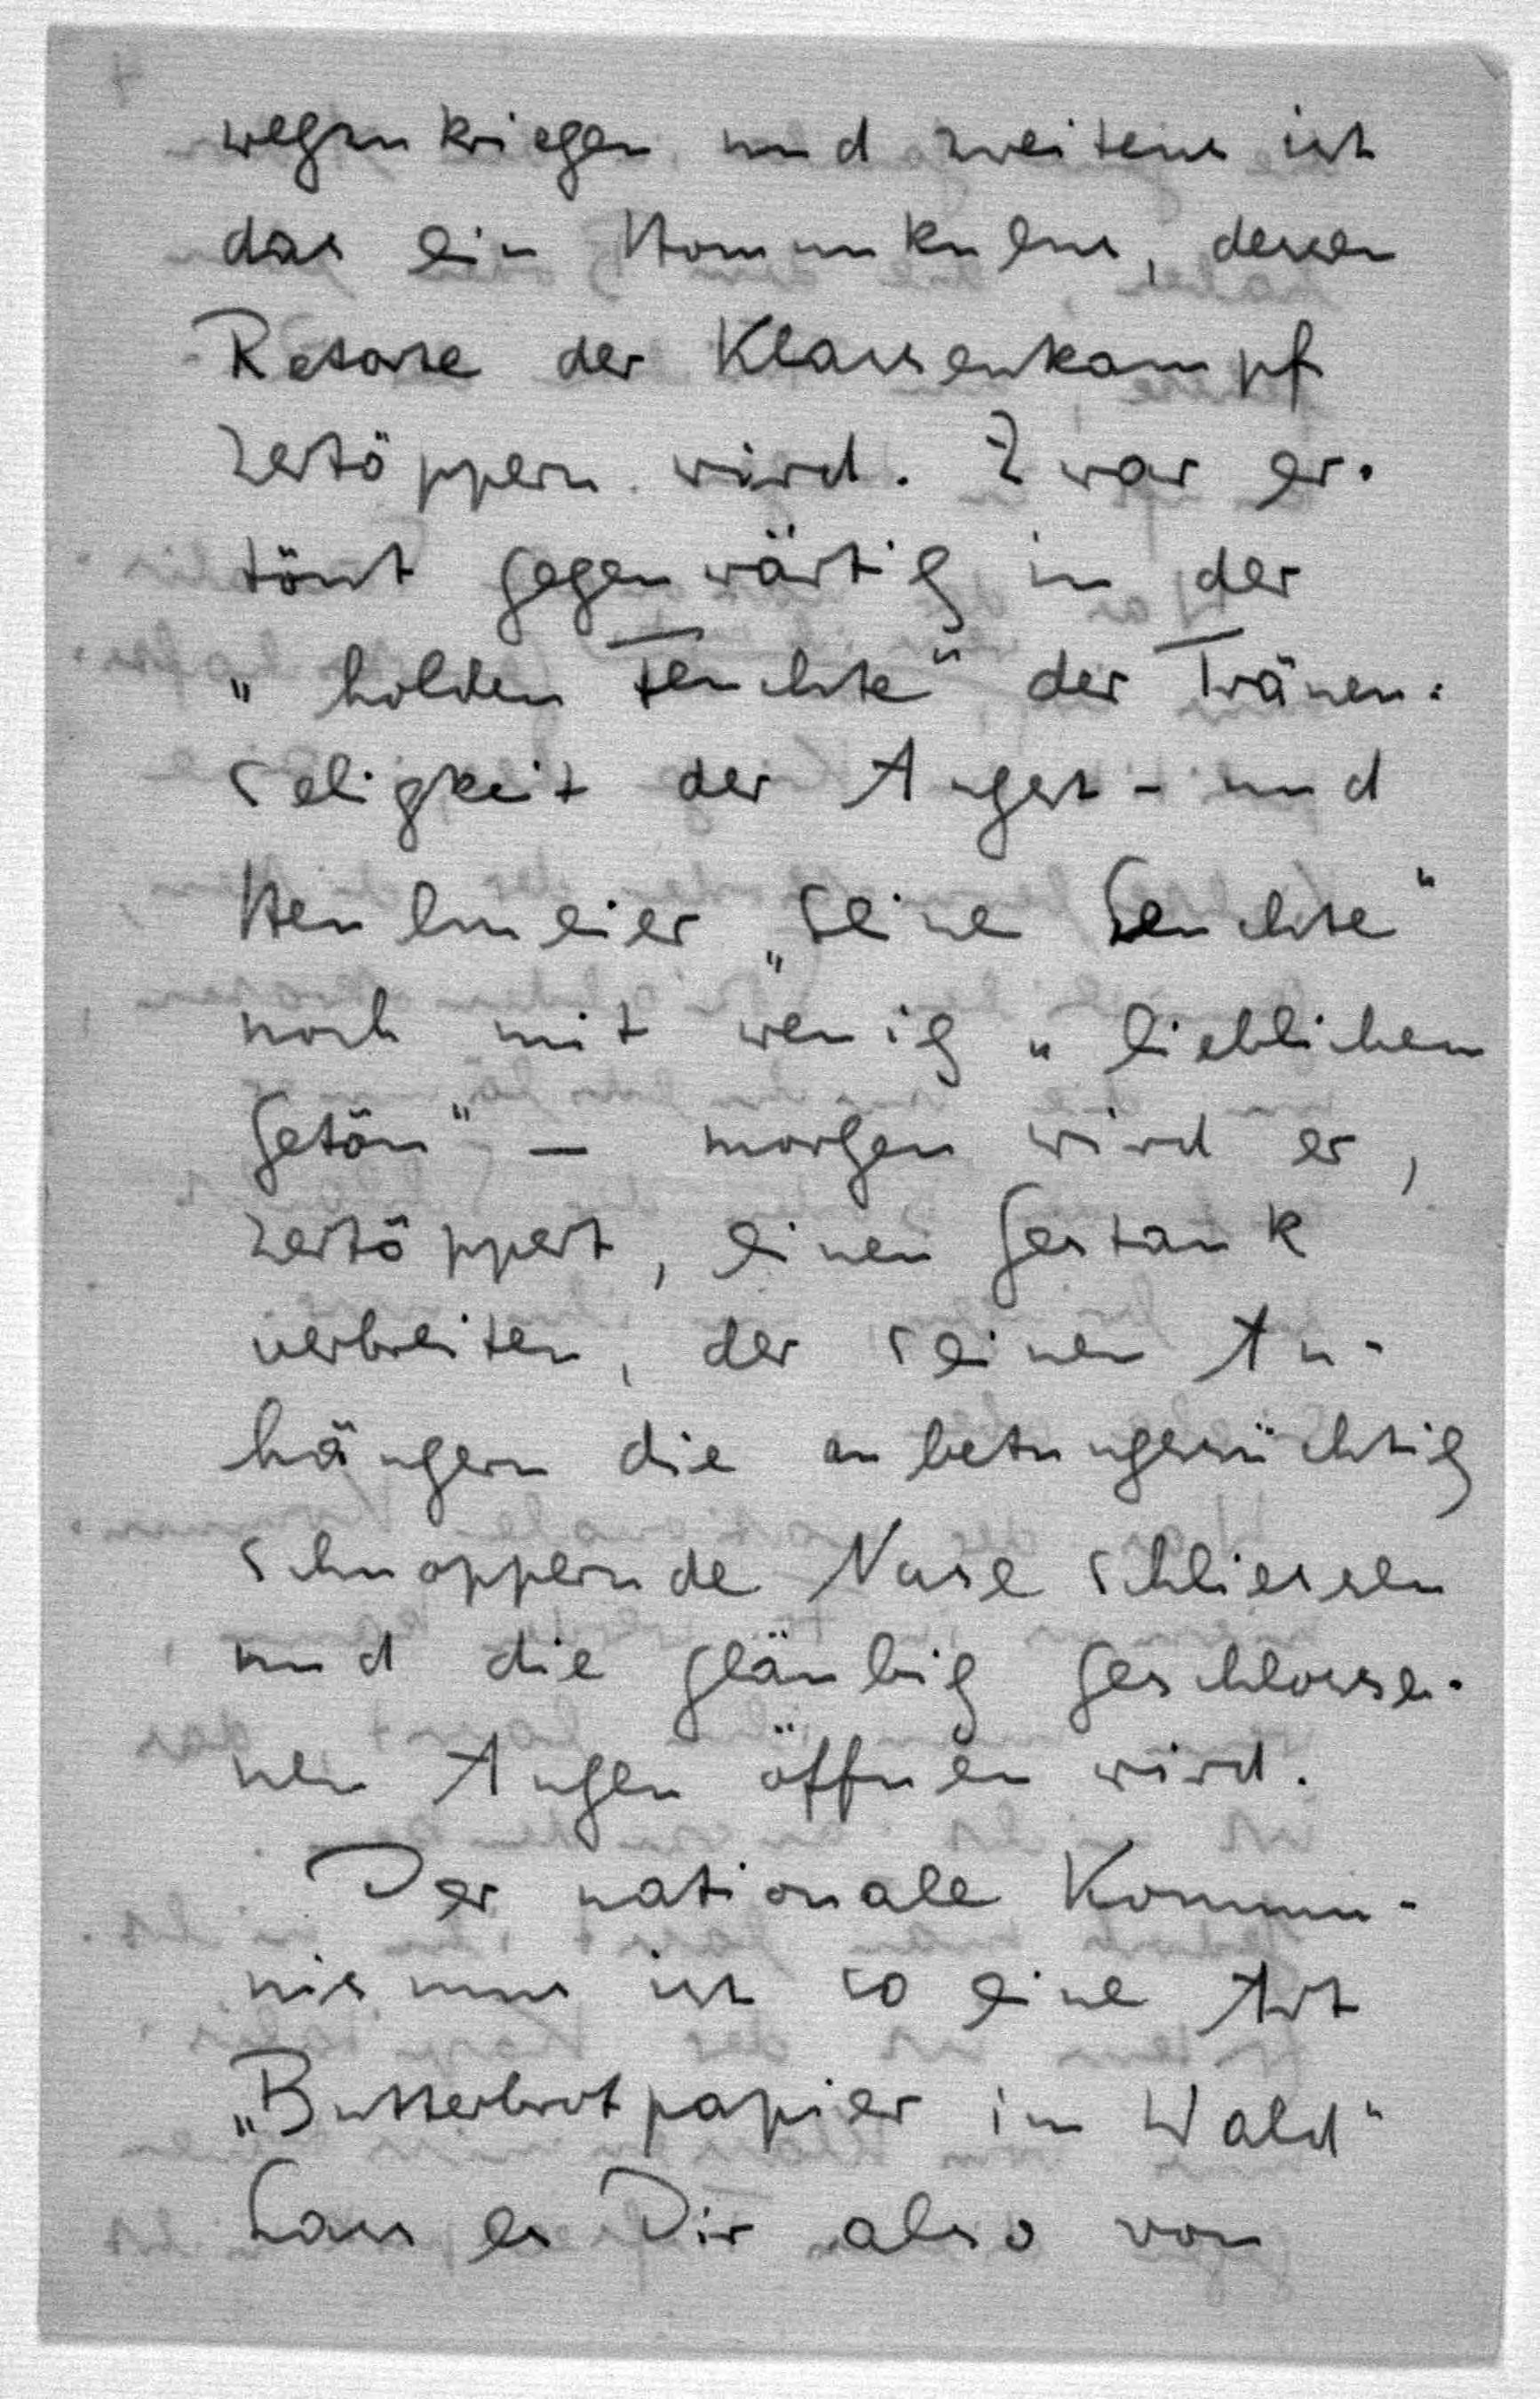 4
wegzukriegen und zweitens ist
das ein Homunkulus, dessen
Retorte der Klassenkampf
zertöppern wird. Zwar er-
tönt gegenwärtig in der
„holden Feuchte“ der Tränen-
seligkeit der Angst- und
Heulmeier „seine Leuchte“
noch mit wenig „lieblichen
Getön“ – morgen wird er,
zertöppert, einen Gestank
verbreiten, der seinen An-
hängern die anbetungssüchtig
schnoppernde Nase schliessen
und die gläubig geschlosse-
nen Augen öffnen wird.
Der nationale Kommu-
nismus ist so eine Art
„Butterbrotpapier im Wald“
Lass es Dir also von